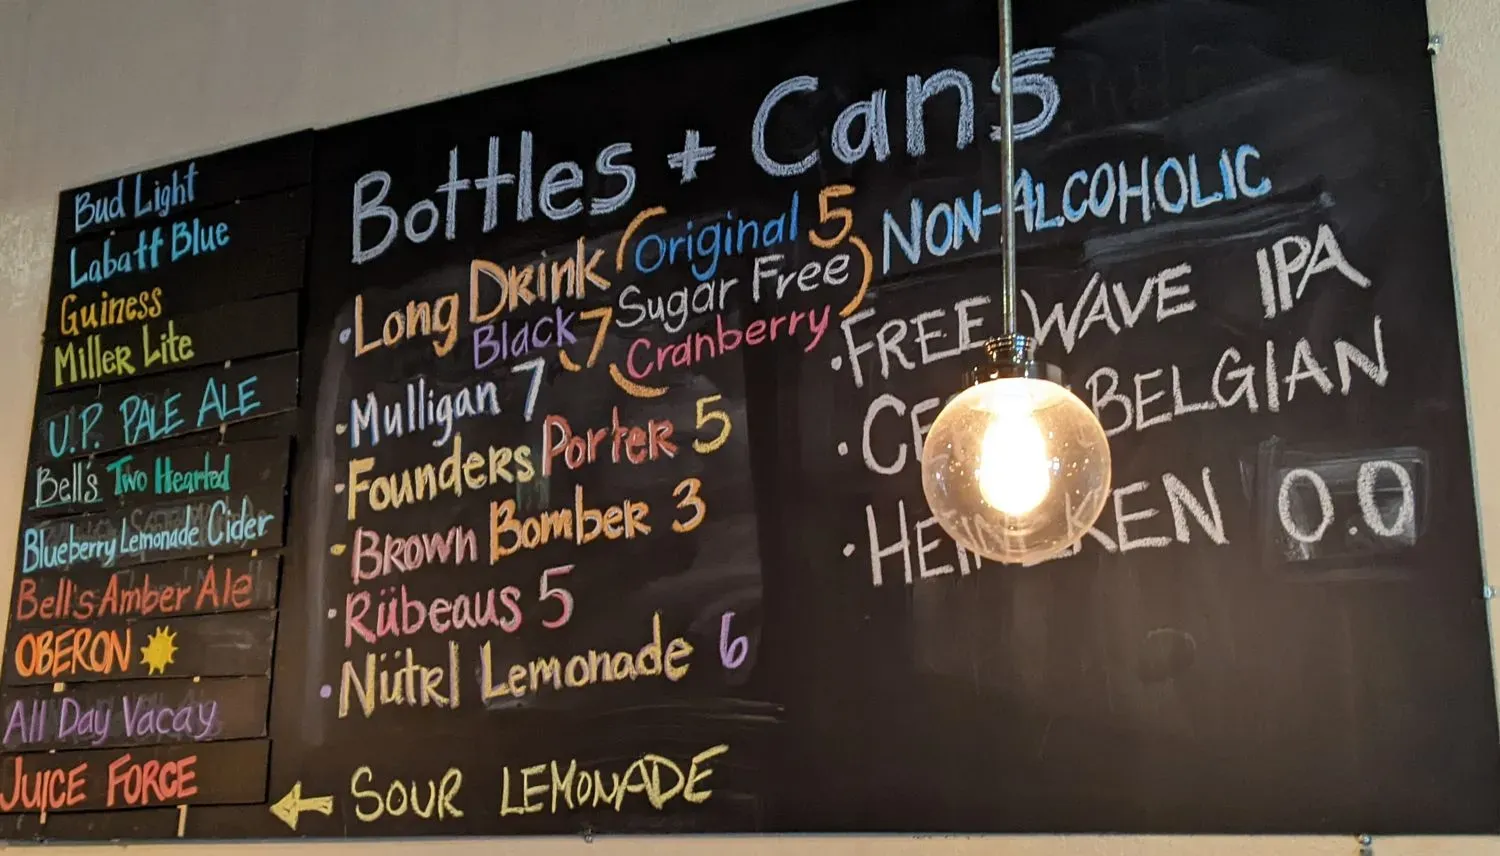 Bud Light
Labatt Blue
Guiness
Miller Lite
U.P. PALE ALE
Bell's Two Hearted
Blueberry Lemonade Cider
Bell's Amber Ale
OBERON
All Day Vacay
JUICE FORCE
Bottles + Cans
• Long Drink (Original 5
Black 7 Sugar Free)
Cranberry
• Mulligan 7
• Founders Porter 5
• Brown Bomber 3
• Rübeaus 5
• Nütrl Lemonade 6
← SOUR LEMONADE
NON-ALCOHOLIC
• FREE WAVE IPA
• BELGIAN
• HEINEKEN 0.0